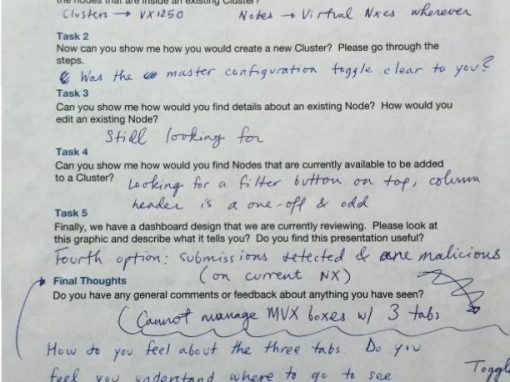 the nodes that are inside an existing Cluster?
Clusters → VX1250 Notes → Virtual Nxes wherever
Task 2
Now can you show me how you would create a new Cluster? Please go through the
steps.
Was the master configuration toggle clear to you?
Task 3
Can you show me how would you find details about an existing Node? How would you
edit an existing Node?
Still looking for
Task 4
Can you show me how would you find Nodes that are currently available to be added
to a Cluster? Looking for a filter button on top, column
header is a one-off & odd
Task 5
Finally, we have a dashboard design that we are currently reviewing. Please look at
this graphic and describe what it tells you? Do you find this presentation useful?
Fourth option: submissions detected & are malicious
(on current NX)
Final Thoughts
Do you have any general comments or feedback about anything you have seen?
(Cannot manage MVX boxes w/ 3 tabs
How do you feel about the three tabs. Do you
feel you understand where to go to see